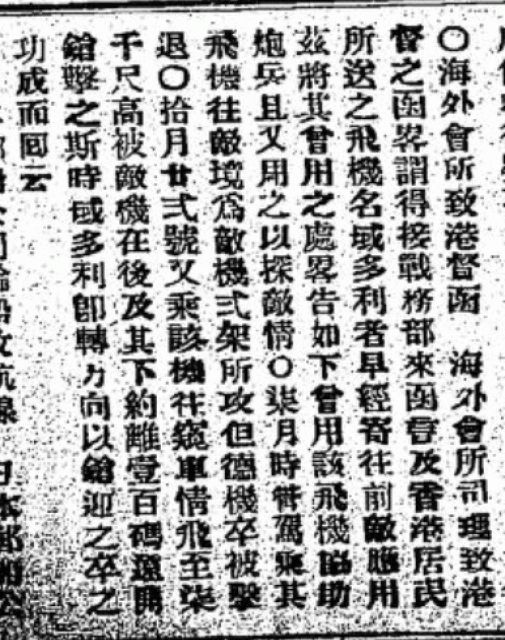 〇海外會所致港督函　海外會所司理致港
督之函畧謂得接戰務部來函言及香港居民
所送之飛機名域多利者早經寄往前敵應用
茲將其曾用之處畧告如下曾用該飛機協助
炮兵且又用之以探敵情〇柒月時曾駕乘其
飛機往敵境爲敵機式架所攻但德機卒被擊
退〇拾月廿弍號又乘該機往窺軍情飛至柒
千尺高被敵機在後及其下約離壹百碼遠開
鎗擊之斯時域多利卽轉方向以鎗迎之卒之
功成而囘云